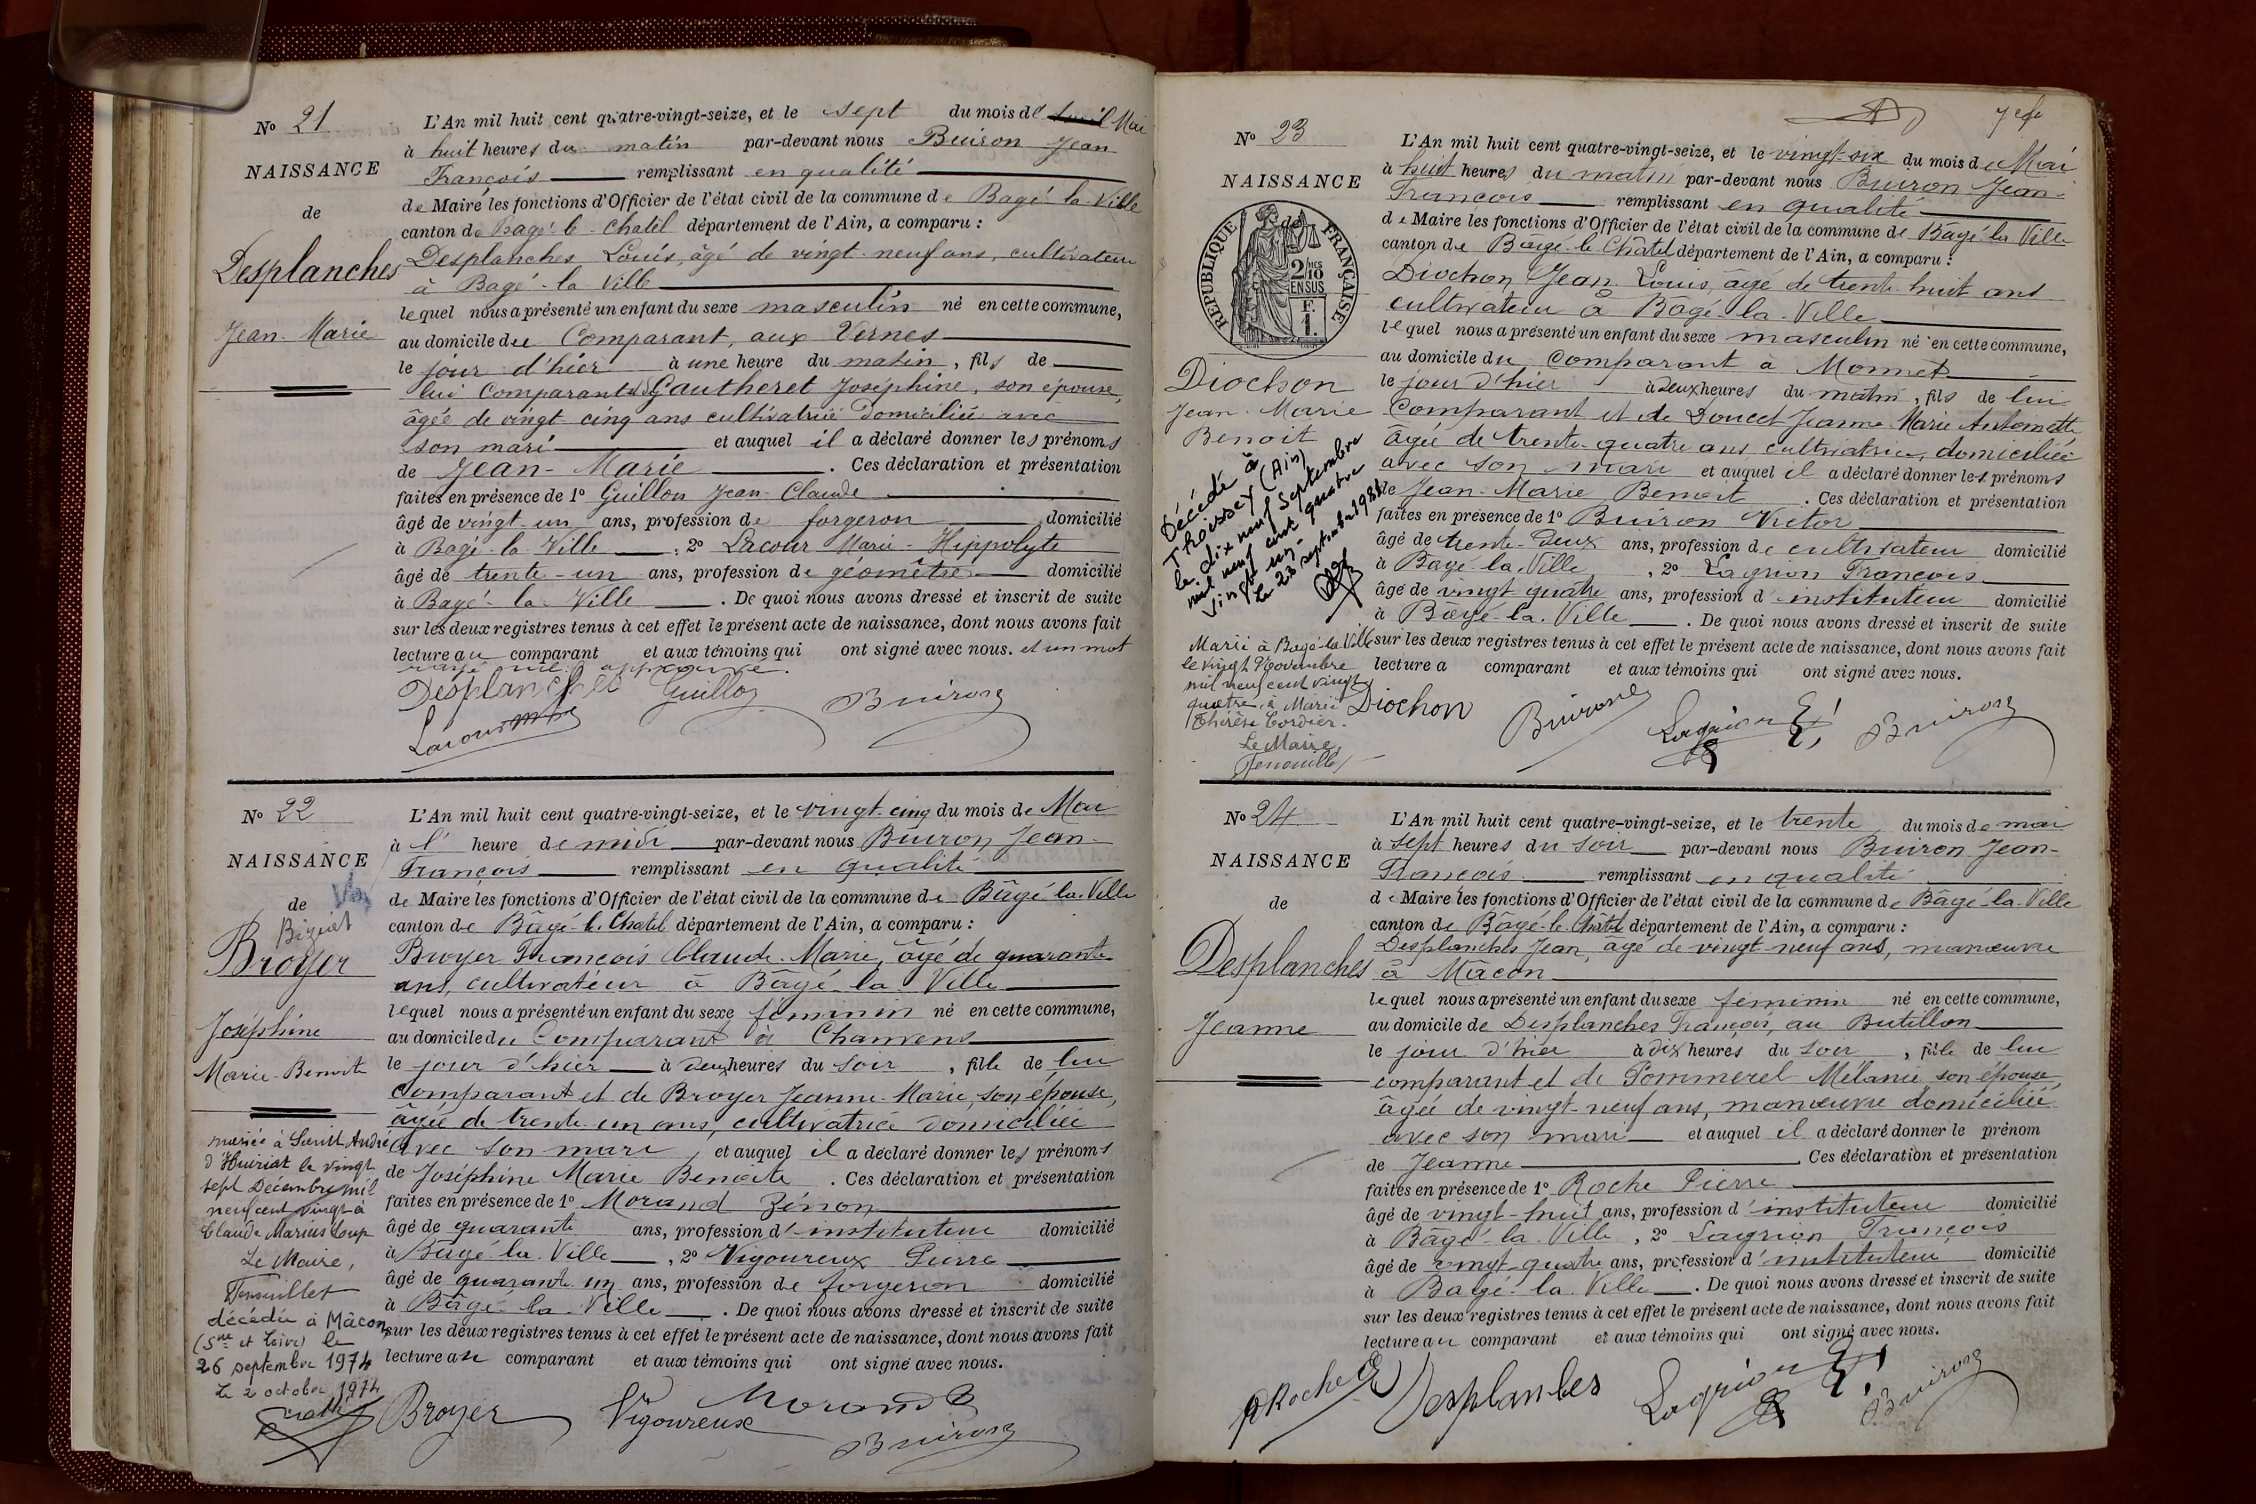 No 21
NAISSANCE
de
Desplanches
Jean-Marie
L'An mil huit cent quatre-vingt-seize, et le sept du mois de Avril Mai
à huit heures du matin par-devant nous Buiron Jean
François remplissant en qualité
de Maire les fonctions d'Officier de l'état civil de la commune de Bagé-la-Ville
canton de Bagé-le-Chatel département de l'Ain, a comparu :
Desplanches Louis, âgé de vingt-neuf ans, cultivateur
à Bagé-la-Ville
lequel nous a présenté un enfant du sexe masculin né en cette commune,
au domicile du Comparant, aux Vernes
le jour d'hier à une heure du matin, fils de
lui Comparant & Gautheret Joséphine, son épouse,
âgée de vingt-cinq ans cultivatrice domiciliée avec
son mari et auquel il a déclaré donner les prénoms
de Jean-Marie. Ces déclaration et présentation
faites en présence de 1o Guillon Jean-Claude
âgé de vingt-un ans, profession de forgeron domicilié
à Bagé-la-Ville, 2o Lacour Marie-Hippolyte
âgé de trente-un ans, profession de géomètre domicilié
à Bagé-la-Ville. De quoi nous avons dressé et inscrit de suite
sur les deux registres tenus à cet effet le présent acte de naissance, dont nous avons fait
lecture au comparant et aux témoins qui ont signé avec nous. et un mot
rayé nul approuvé.
Desplanches Guillon Buiron
Lacour
No 22
NAISSANCE
de
Biziat
Broyer
Joséphine
Marie-Benoite
mariée à Saint André
d'Huiriat le vingt
sept Décembre mil
neuf cent vingt à
Claude Marius Loup
Le Maire,
Fenouillet
décédée à Mâcon
(Sne et Loire) le
26 septembre 1974
Le 2 octobre 1974
L'An mil huit cent quatre-vingt-seize, et le vingt-cinq du mois de Mai
à l' heure de midi par-devant nous Buiron Jean-
François remplissant en qualité
de Maire les fonctions d'Officier de l'état civil de la commune de Bâgé-la-Ville
canton de Bâgé-le-Chatel département de l'Ain, a comparu :
Broyer François Claude-Marie, âgé de quarante
ans, cultivateur à Bâgé-la-Ville
lequel nous a présenté un enfant du sexe féminin né en cette commune,
au domicile du Comparant à Chanvens
le jour d'hier à deux heures du soir, fille de lui
Comparant et de Broyer Jeanne-Marie, son épouse,
âgée de trente-un ans, cultivatrice domiciliée
avec son mari, et auquel il a déclaré donner les prénoms
de Joséphine Marie Benoite. Ces déclaration et présentation
faites en présence de 1o Morand Zénon
âgé de quarante ans, profession d'instituteur domicilié
à Bâgé-la-Ville, 2o Vigoureux Pierre
âgé de quarante un ans, profession de forgeron domicilié
à Bâgé-la-Ville. De quoi nous avons dressé et inscrit de suite
sur les deux registres tenus à cet effet le présent acte de naissance, dont nous avons fait
lecture au comparant et aux témoins qui ont signé avec nous.
Broyer Vigoureux Morand
Buiron
No 23
NAISSANCE
de
RÉPUBLIQUE FRANÇAISE
2/10 MES
EN SUS
F.
1.
Diochon
Jean-Marie
Benoit
Décédé à
Thoissey (Ain)
le dix neuf Septembre
mil neuf cent quatre
vingt un-
Le 23 septembre 1981
Marié à Bagé-la-Ville
le vingt Novembre
mil neuf cent vingt
quatre à Marie
Thérèse Cordier.
Le Maire,
Fenouillet
L'An mil huit cent quatre-vingt-seize, et le vingt-six du mois de Mai
à huit heures du matin par-devant nous Buiron Jean-
François remplissant en qualité
de Maire les fonctions d'Officier de l'état civil de la commune de Bâgé-la-Ville
canton de Bâgé-le-Chatel département de l'Ain, a comparu :
Diochon Jean-Louis, âgé de trente-huit ans
cultivateur à Bâgé-la-Ville
lequel nous a présenté un enfant du sexe masculin né en cette commune,
au domicile du comparant à Monnet
le jour d'hier à deux heures du matin, fils de lui
Comparant et de Doucet Jeanne Marie Antoinette
âgée de trente-quatre ans cultivatrice, domiciliée
avec son mari et auquel il a déclaré donner les prénoms
de Jean-Marie Benoit. Ces déclaration et présentation
faites en présence de 1o Buiron Victor
âgé de trente-deux ans, profession de cultivateur domicilié
à Bagé-la-Ville, 2o Lagrion François
âgé de vingt quatre ans, profession d'instituteur domicilié
à Bâgé-la-Ville. De quoi nous avons dressé et inscrit de suite
sur les deux registres tenus à cet effet le présent acte de naissance, dont nous avons fait
lecture a comparant et aux témoins qui ont signé avec nous.
Diochon Buiron Lagrion Buiron
No 24
NAISSANCE
de
Desplanches
Jeanne
L'An mil huit cent quatre-vingt-seize, et le trente du mois de mai
à sept heures du soir par-devant nous Buiron Jean-
François remplissant en qualité
de Maire les fonctions d'Officier de l'état civil de la commune de Bâgé-la-Ville
canton de Bâgé-le-Châtel département de l'Ain, a comparu :
Desplanches Jean, âgé de vingt-neuf ans, manœuvre
à Mâcon
lequel nous a présenté un enfant du sexe féminin né en cette commune,
au domicile de Desplanches François, au Butillon
le jour d'hier à dix heures du soir, fille de lui
comparant et de Pommerel Mélanie son épouse
âgée de vingt-neuf ans, manœuvre domiciliée
avec son mari et auquel il a déclaré donner le prénom
de Jeanne. Ces déclaration et présentation
faites en présence de 1o Roche Pierre
âgé de vingt-huit ans, profession d'instituteur domicilié
à Bâgé-la-Ville, 2o Lagrion François
âgé de vingt-quatre ans, profession d'instituteur domicilié
à Bâgé-la-Ville. De quoi nous avons dressé et inscrit de suite
sur les deux registres tenus à cet effet le présent acte de naissance, dont nous avons fait
lecture au comparant et aux témoins qui ont signé avec nous.
P Roche Desplanches Lagrion Buiron